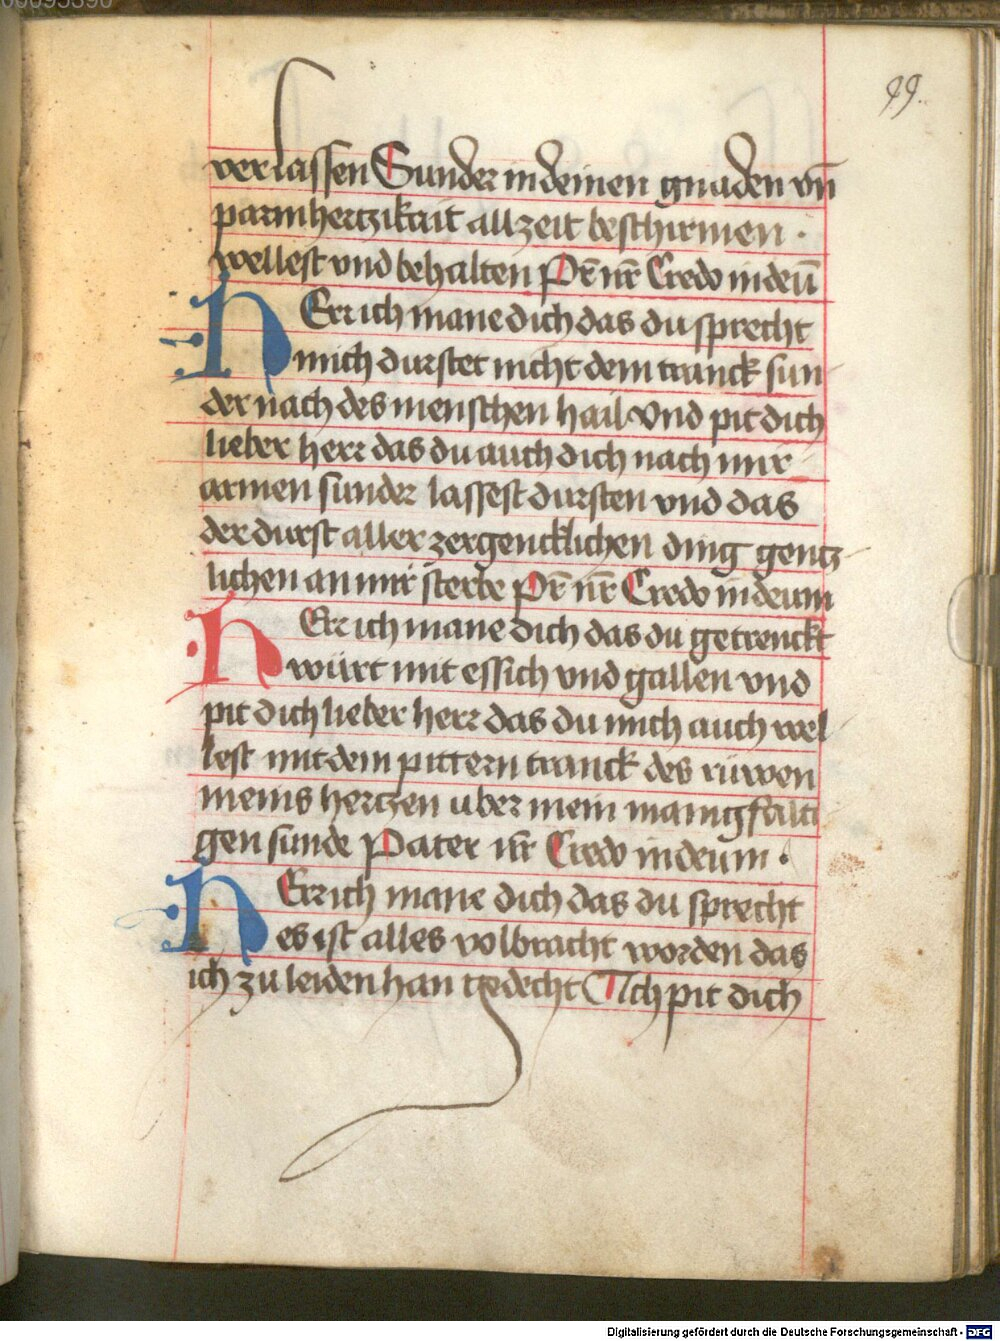 99.
verlassen Sunder in deinen gnaden vn̄
parmhertzikait allzeit beschirmen ·
wellest vnd behalten Pr̄ nr̄ Credo in deū
HErr ich mane dich das du sprecht
mich durstet nicht dem tranck sun
der nach des menschen hail Vnd pit dich
lieber herr das du auch dich nach mir
armen sunder lassest dursten vnd das
der durst aller zergencklichen ding gentz
lichen an mir sterbe Pr̄ nr̄ Credo in deum
HErr ich mane dich das du getrenckt
würt mit essich vnd gallen vnd
pit dich lieber herr das du mich auch wel
lest mit dem pittern tranck des rüwen
meins hertzen uber mein manigfalti
gen sunde Pater nr̄ Credo in deum ·
HErr ich mane dich das du sprecht
es ist alles volbracht worden das
ich zu leiden han gedecht Ich pit dich
Digitalisierung gefördert durch die Deutsche Forschungsgemeinschaft - DFG